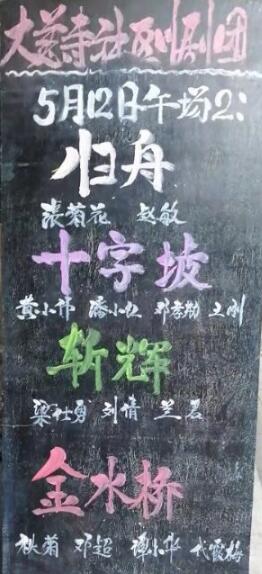 大慈寺社区川剧团
5月12日午场2:
归舟
张菊花 赵敏
十字坡
黄小伟 潘小红 邓孝勋 王刚
斩辉
梁仕勇 刘倩 兰君
金水桥
秋菊 邓超 谭小华 代霞梅